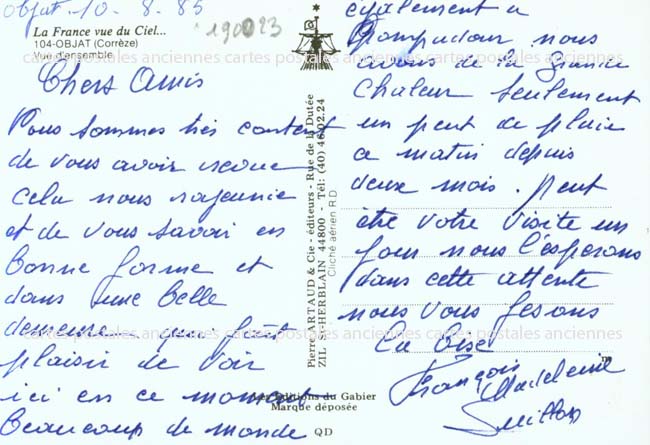 Objat. 10. 8. 85
La France vue du Ciel...
104-OBJAT (Corrèze)
Vue d'ensemble
190023
Chers Amis
Nous sommes très content
de vous avoir revue
cela nous rajeunie
et de vous savoir en
bonne forme et
dans une belle
demeure
plaisir de voir
ici en ce moment
beaucoup de monde
Pierre ARTAUD & Cie - éditeurs - Rue de la Dutée
ZIL ST-HERBLAIN 44800 - Tél: (40) 46.02.24
Cliché aérien R.D
Les Editions du Gabier
Marque déposée
QD
également a
Pompadour nous
avons de la grande
chaleur seulement
un peut de pluie
ce matin depuis
deux mois. peut
être votre visite un
jour nous l'esperons
dans cette attente
nous vous fesons
la bise
François
Madeleine
cartes postales anciennes cartes postales anciennes cartes postales anciennes
cartes postales anciennes cartes postales anciennes cartes postales anciennes